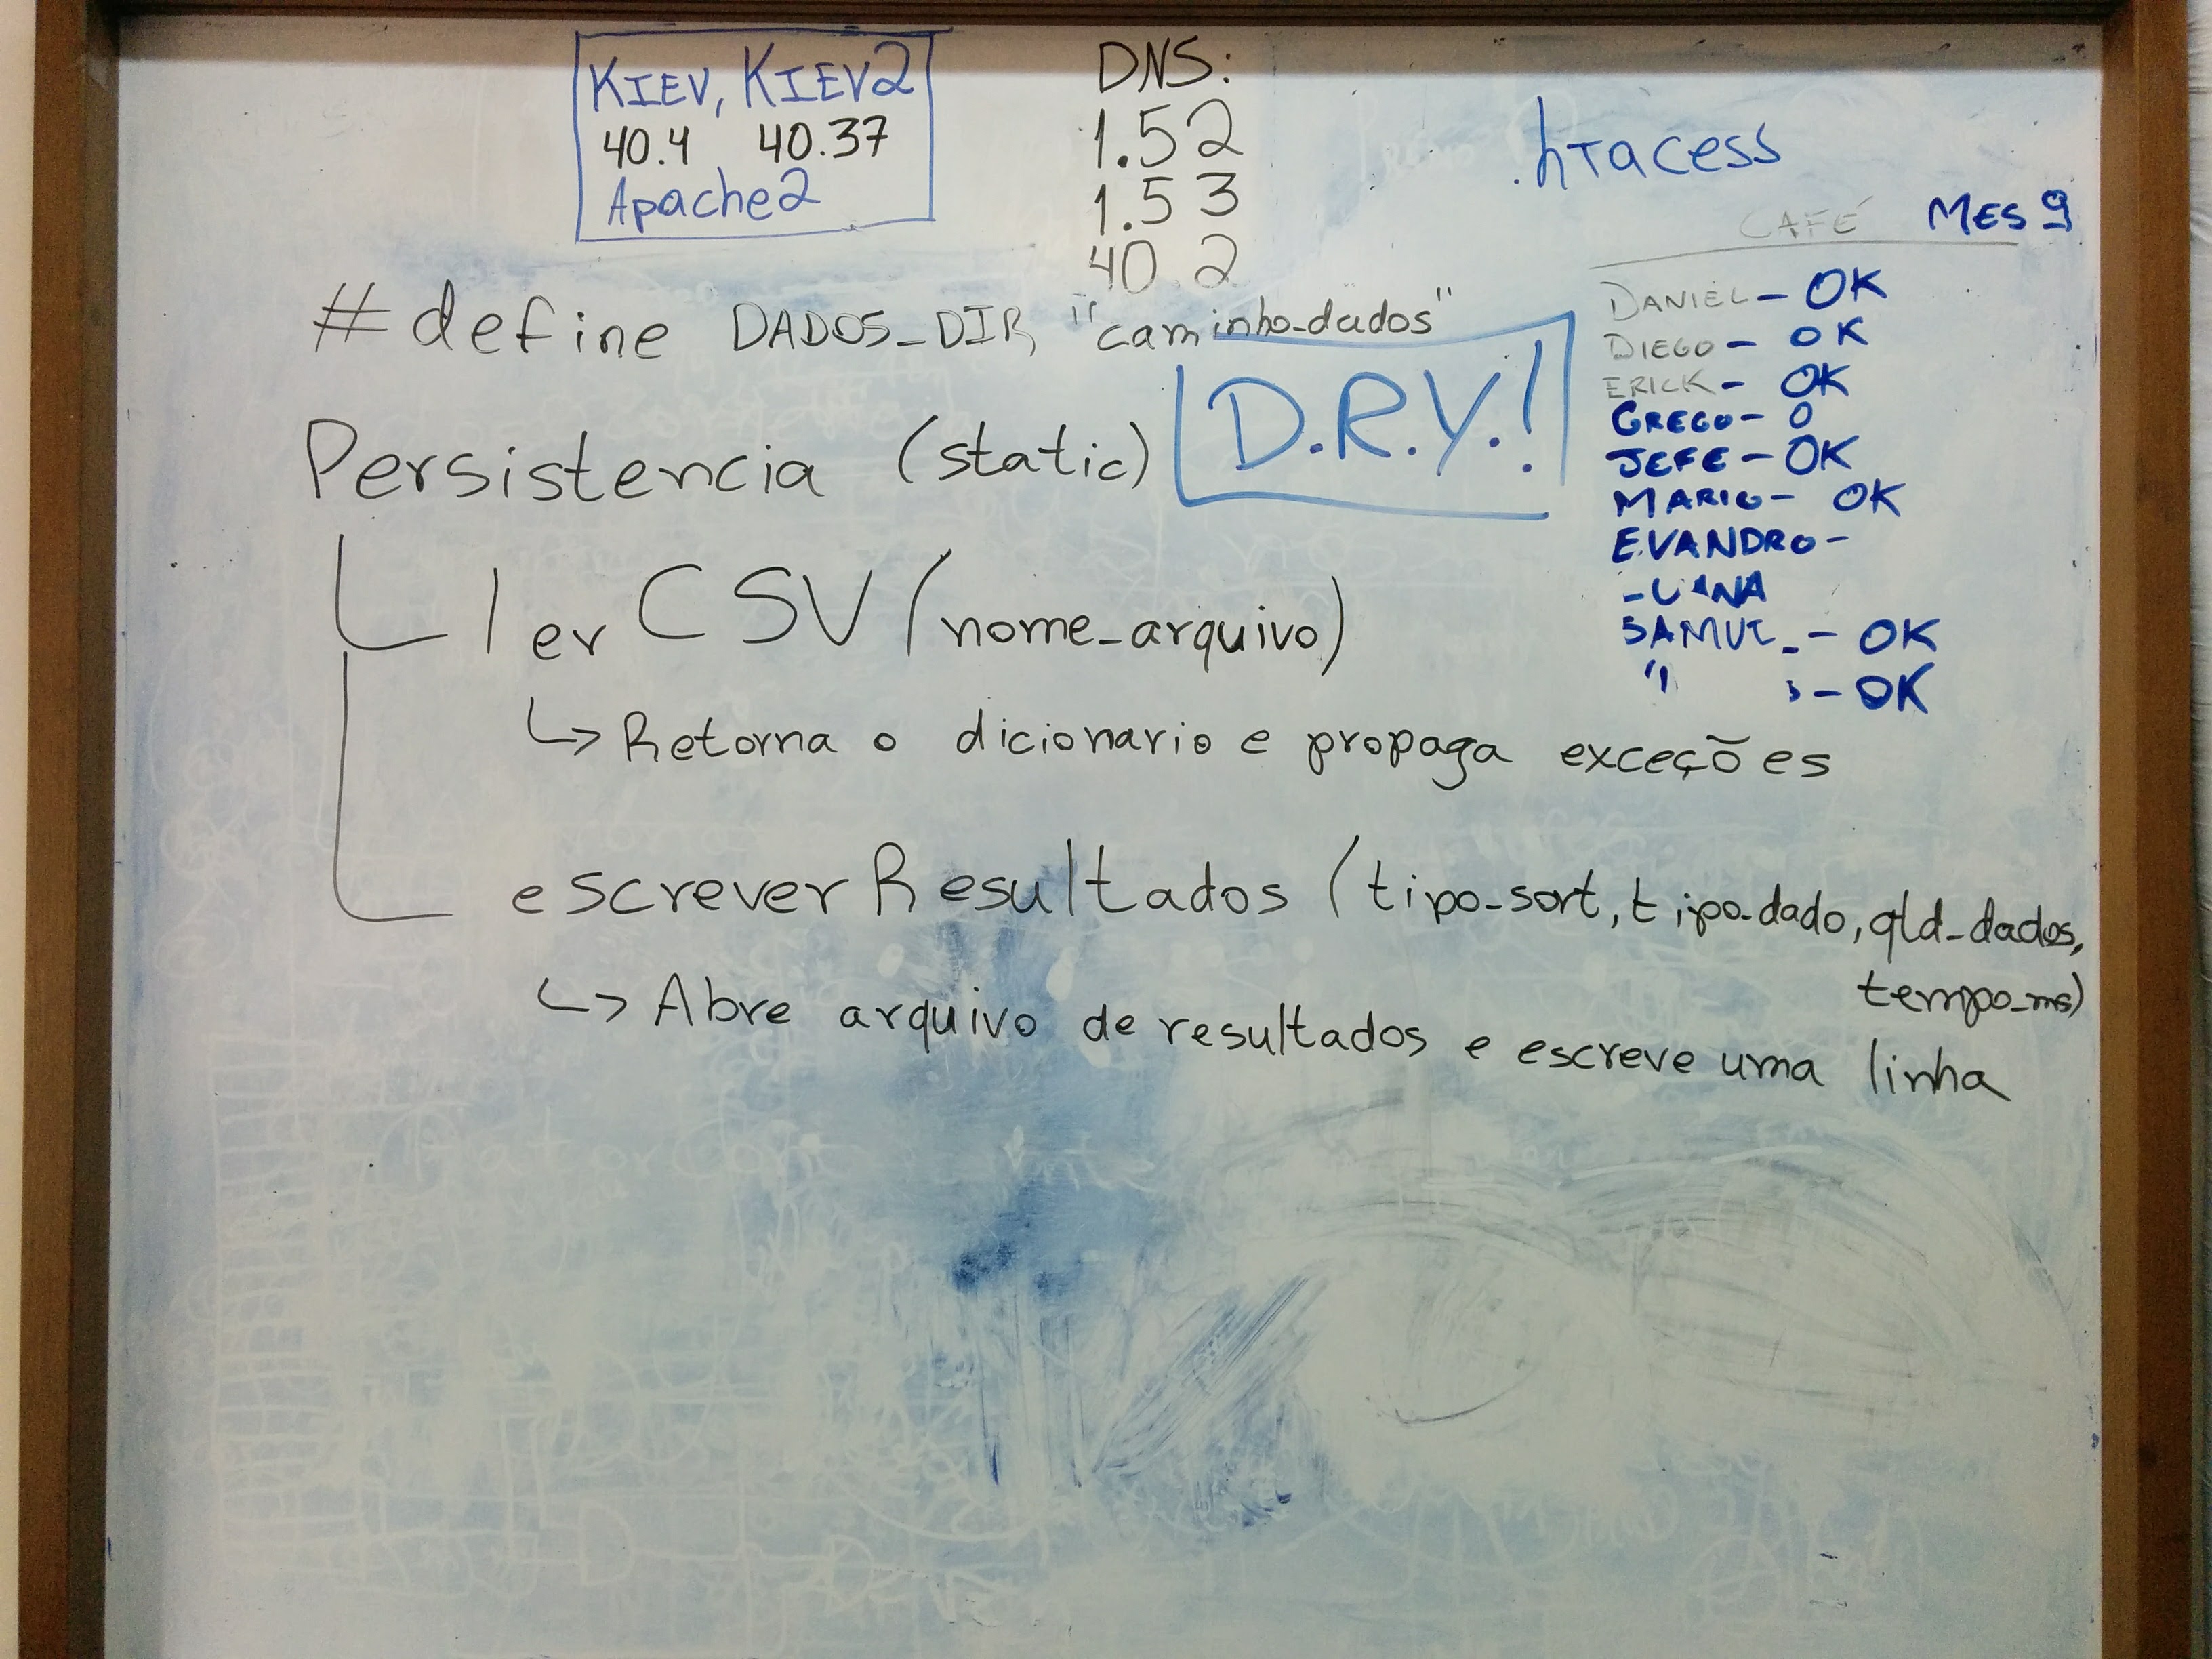 KIEV, KIEV2
40.4 40.37
Apache2
DNS:
1.52
1.53
40.2
.hTacess
CAFÉ MES 9
DANIEL - OK
DIEGO - OK
ERICK - OK
GREGO - O
JEFE - OK
MARIO - OK
EVANDRO -
- OK
- OK
#define DADOS_DIR "caminho_dados"
D.R.Y.!
Persistencia (static)
lerCSV(nome_arquivo)
↳ Retorna o dicionario e propaga exceções
escreverResultados (tipo_sort, tipo_dado, qtd_dados,
tempo_ms)
↳ Abre arquivo de resultados e escreve uma linha